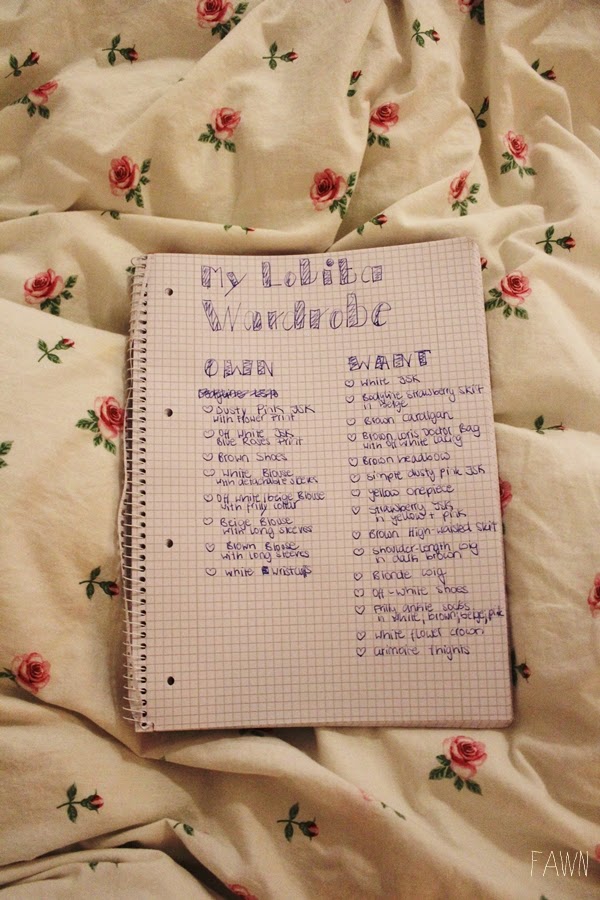 My Lolita
Wardrobe
OWN
Dusty Pink JSK
with flower Print
Off White JSK
Blue Roses Print
Brown Shoes
White Blouse
with detachable sleeves
Off white/beige Blouse
with frilly collar
Beige Blouse
with long sleeves
Brown Blouse
with long sleeves
white wristcups
WANT
White JSK
Bodyline strawberry Skirt
in Beige
Brown Cardigan
Brown Loris Doctor Bag
with off white
Brown headbow
simple dusty pink JSK
yellow onepiece
Strawberry JSK
in yellow + pink
Brown High-waisted Skirt
shoulder-length wig
in dark brown
Blonde wig
Off-white shoes
Frilly ankle socks
in white, brown, beige, pink
white flower crown
Grimoire thights
FAWN